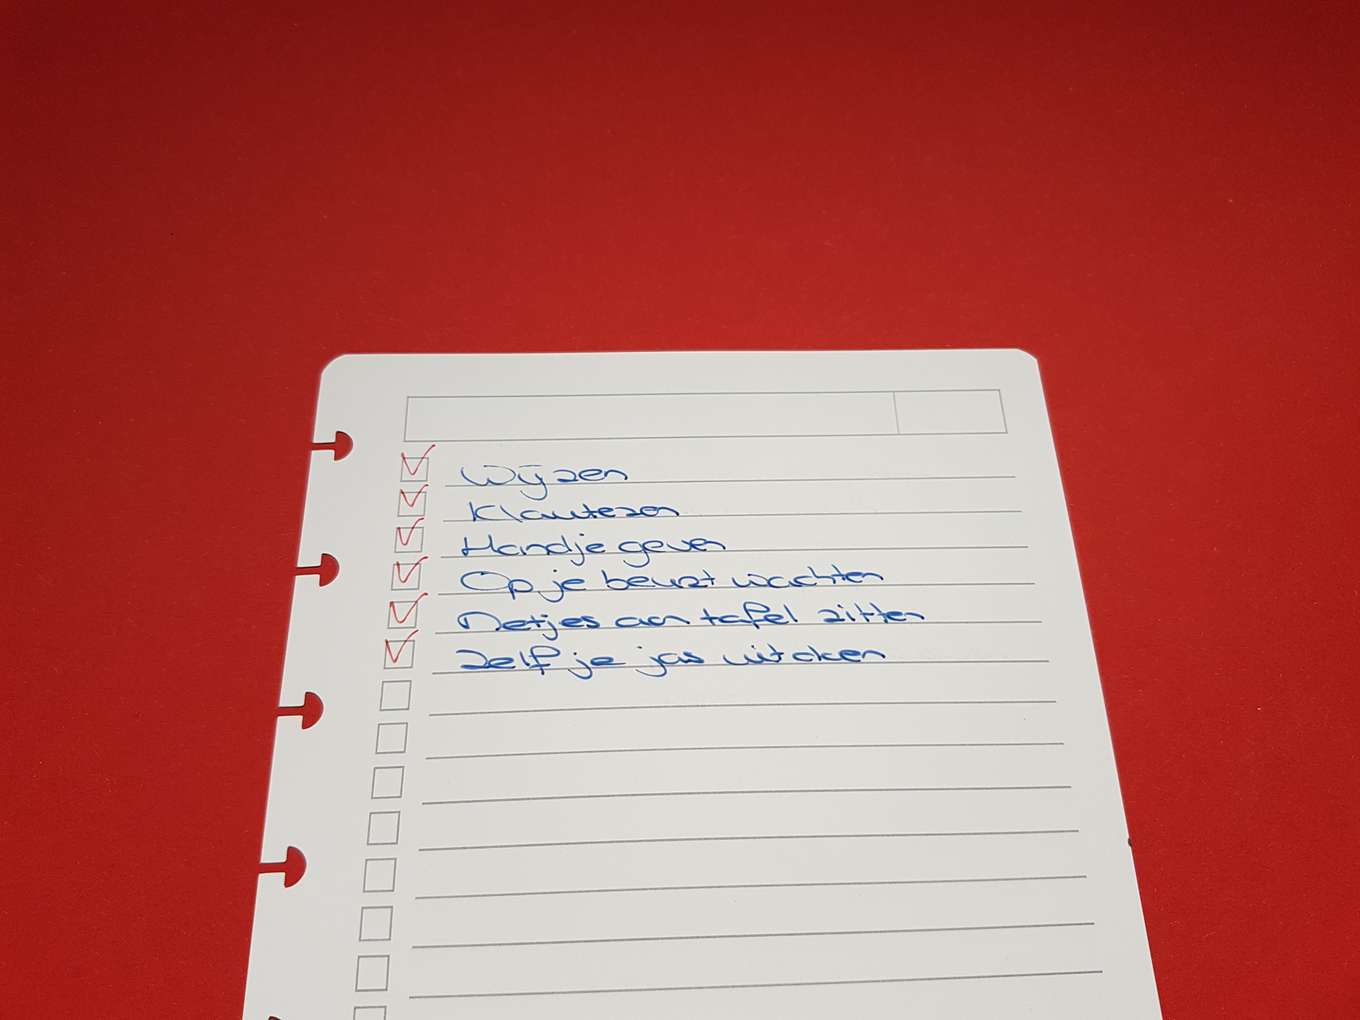 Wijzen
Klauteren
Handje geven
Op je beurt wachten
Netjes aan tafel zitten
Zelf je jas uitdoen